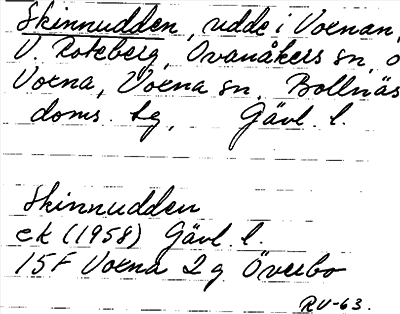 Skinnudden, udde i Voxnan,
V. Roteberg, Ovanåkers sn, o
Voxna, Voxna sn, Bollnäs
doms. tg, Gävl. l.
Skinnudden
ek (1958) Gävl. l.
15F Voxna 2g Överbo
RV-63.